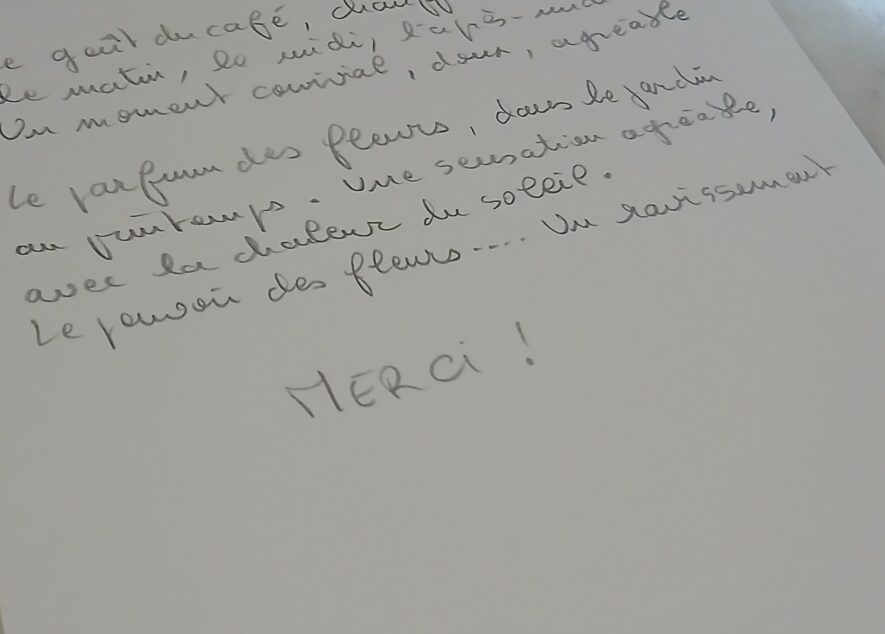 e goût du café, chau
le matin, le midi, l'après-mid
Un moment convivial, doux, agréable
Le parfum des fleurs, dans le jardin
au printemps. Une sensation agréable,
avec la chaleur du soleil.
Le pouvoir des fleurs.... Un ravissement
MERCi !